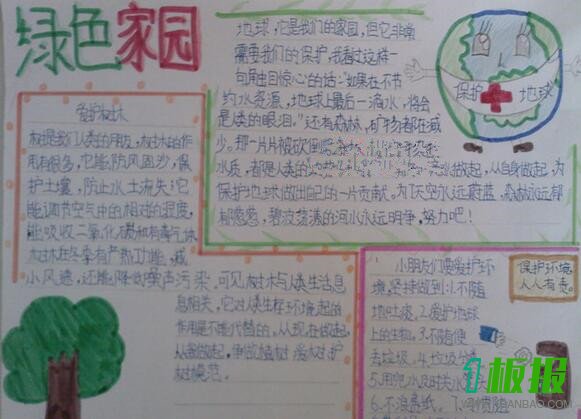 绿色家园
地球,它是我们的家园,但它非常
需要我们的保护,我看过这样一
句触目惊心的话:"如果在不节
约水资源,地球上最后一滴水,将会
是人类的眼泪。"还有森林,矿物都在减
少。那一片片被砍伐
水质,都是人类的 做起,从自身做起,为
保护地球做出自己的一片贡献。为了天空永远蔚蓝,森林永远郁
郁葱葱,碧波荡漾的河水永远明净,努力吧!
保护 地球
爱护树木
树是我们人类的朋友,树木的作
用有很多,它能防风固沙,保
护土壤,防止水土流失;它
能调节空气中的相对的湿度,
能吸收二氧化碳和有毒气体
树木在冬季有产热功能,减
小风速,还能降低噪声污染,可见树木与人类生活息
息相关,它对人类生存环境起的
作用是不能代替的。从现在做起,
从我做起,争做植树 爱树 护
树模范。
小朋友们要爱护环
境,坚持做到:1.不随
地吐痰。2.爱护地球
上的生物。3.不随便
丢垃圾。4.垃圾分类
5.用完水及时关水
6.不浪费纸。7.不随
保护环境
人人有责。
板报
BANBAO.COM